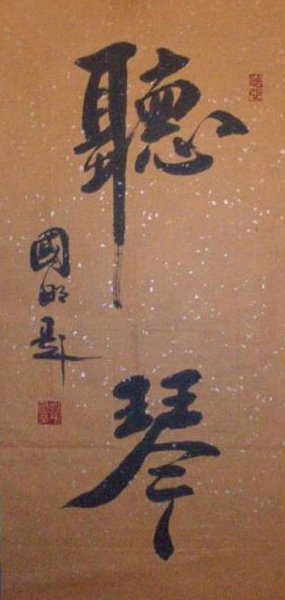 聽琴
國明題